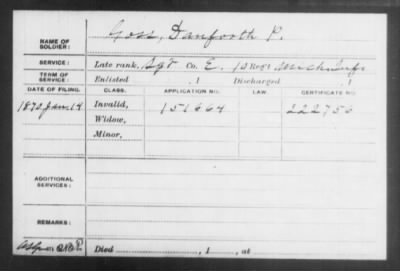 NAME OF SOLDIER: Goss, Danforth P.
SERVICE: Late rank, Sgt Co. E, 10 Reg't Mich. Inf.
TERM OF SERVICE: Enlisted , 1 Discharged , 1
DATE OF FILING. CLASS. APPLICATION NO. LAW. CERTIFICATE NO.
1870 Jan. 14 Invalid, 151664 222756
Widow,
Minor,
ADDITIONAL SERVICES:
REMARKS:
Died , 1 , at